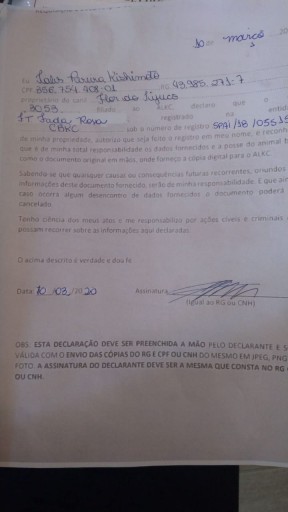 10 de março
Eu
CPF 356.754.408-01 RG 43.985.271-7
proprietário do canil Flor do Tijuco
3053 filiado ao ALKC declaro que o
registrado na entid
CBKC sob o número de registro
de minha propriedade, autorizo que seja feito o registro em meu nome, e reconh
que é de minha total responsabilidade os dados fornecidos e a posse do animal b
como o documento original em mãos, onde forneço a cópia digital para o ALKC.
Sabendo-se que quaisquer causas ou consequências futuras recorrentes, oriundos
informações deste documento fornecido, serão de minha responsabilidade. E que ain
caso ocorra algum desencontro de dados fornecidos o documento poderá
cancelado.
Tenho ciência dos meus atos e me responsabilizo por ações cíveis e criminais
possam recorrer sobre as informações aqui declaradas.
O acima descrito é verdade e dou fé.
Data: 10 /03 /2020 Assinatura
(Igual ao RG ou CNH)
OBS: ESTA DECLARAÇÃO DEVE SER PREENCHIDA A MÃO PELO DECLARANTE E S
VÁLIDA COM O ENVIO DAS CÓPIAS DO RG E CPF OU CNH DO MESMO EM JPEG, PNG
FOTO. A ASSINATURA DO DECLARANTE DEVE SER A MESMA QUE CONSTA NO RG
OU CNH.